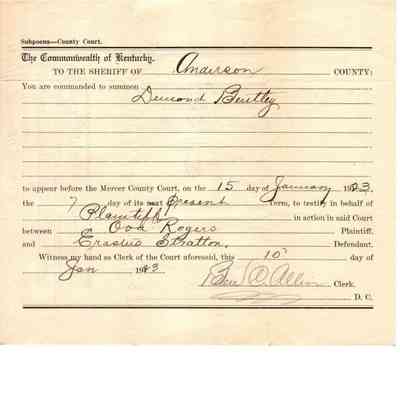 Subpoena—County Court.
The Commonwealth of Kentucky.
TO THE SHERIFF OF Anderson COUNTY:
You are commanded to summon
Demond Bentley
to appear before the Mercer County Court, on the 15 day of January 1923.
the 7 day of its next present Term, to testify in behalf of
Plaintiff in action in said Court
between Ova Rogers Plaintiff,
and Erastus Stratton, Defendant.
Witness my hand as Clerk of the Court aforesaid, this 10 day of
Jan 1923 Ben C. Allin Clerk.
D. C.